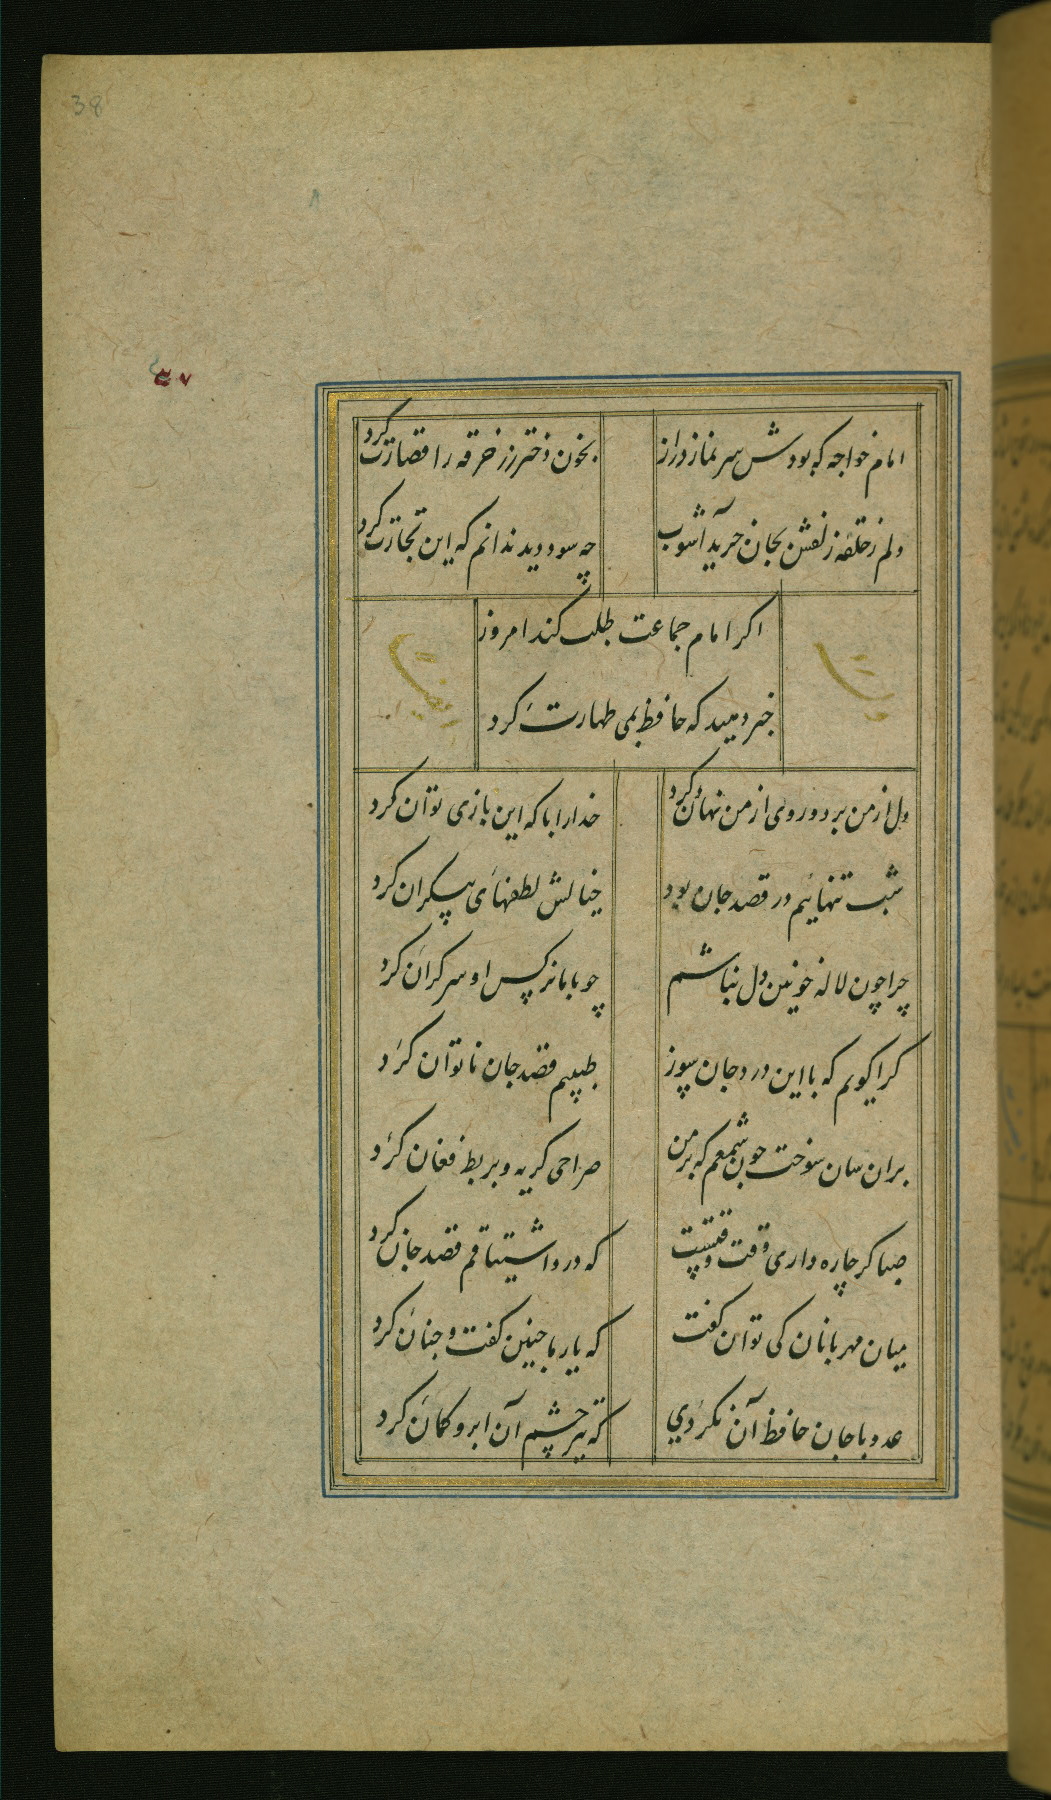 38
امام خواجه که بودش سر نماز دراز
بخون دختر رز خرقه را قصارت کرد
دلم ز حلقه زلفش بجان خرید آشوب
چه سود دید ندانم که این تجارت کرد
اکر امام جماعت طلب کند امروز
خبر دهید که حافظ بمی طهارت کرد
دل از من برد و روی از من نهان کرد
خدا را با که این بازی توان کرد
شب تنهائیم در قصد جان بود
خیالش لطفهای بیکران کرد
چرا چون لاله خونین دل نباشم
چو با ما نرکس او سر کران کرد
کرا کویم که با این درد جان سوز
طبیبم قصد جان ناتوان کرد
بران سان سوخت چون شمعم که بر من
صراحی کریه و بربط فغان کرد
صبا کر چاره داری وقت وقتست
که درد اشتیاقم قصد جان کرد
میان مهربانان کی توان کفت
که یار ما چنین کفت و چنان کرد
عدو با جان حافظ آن نکردی
که تیر چشم آن ابرو کمان کرد